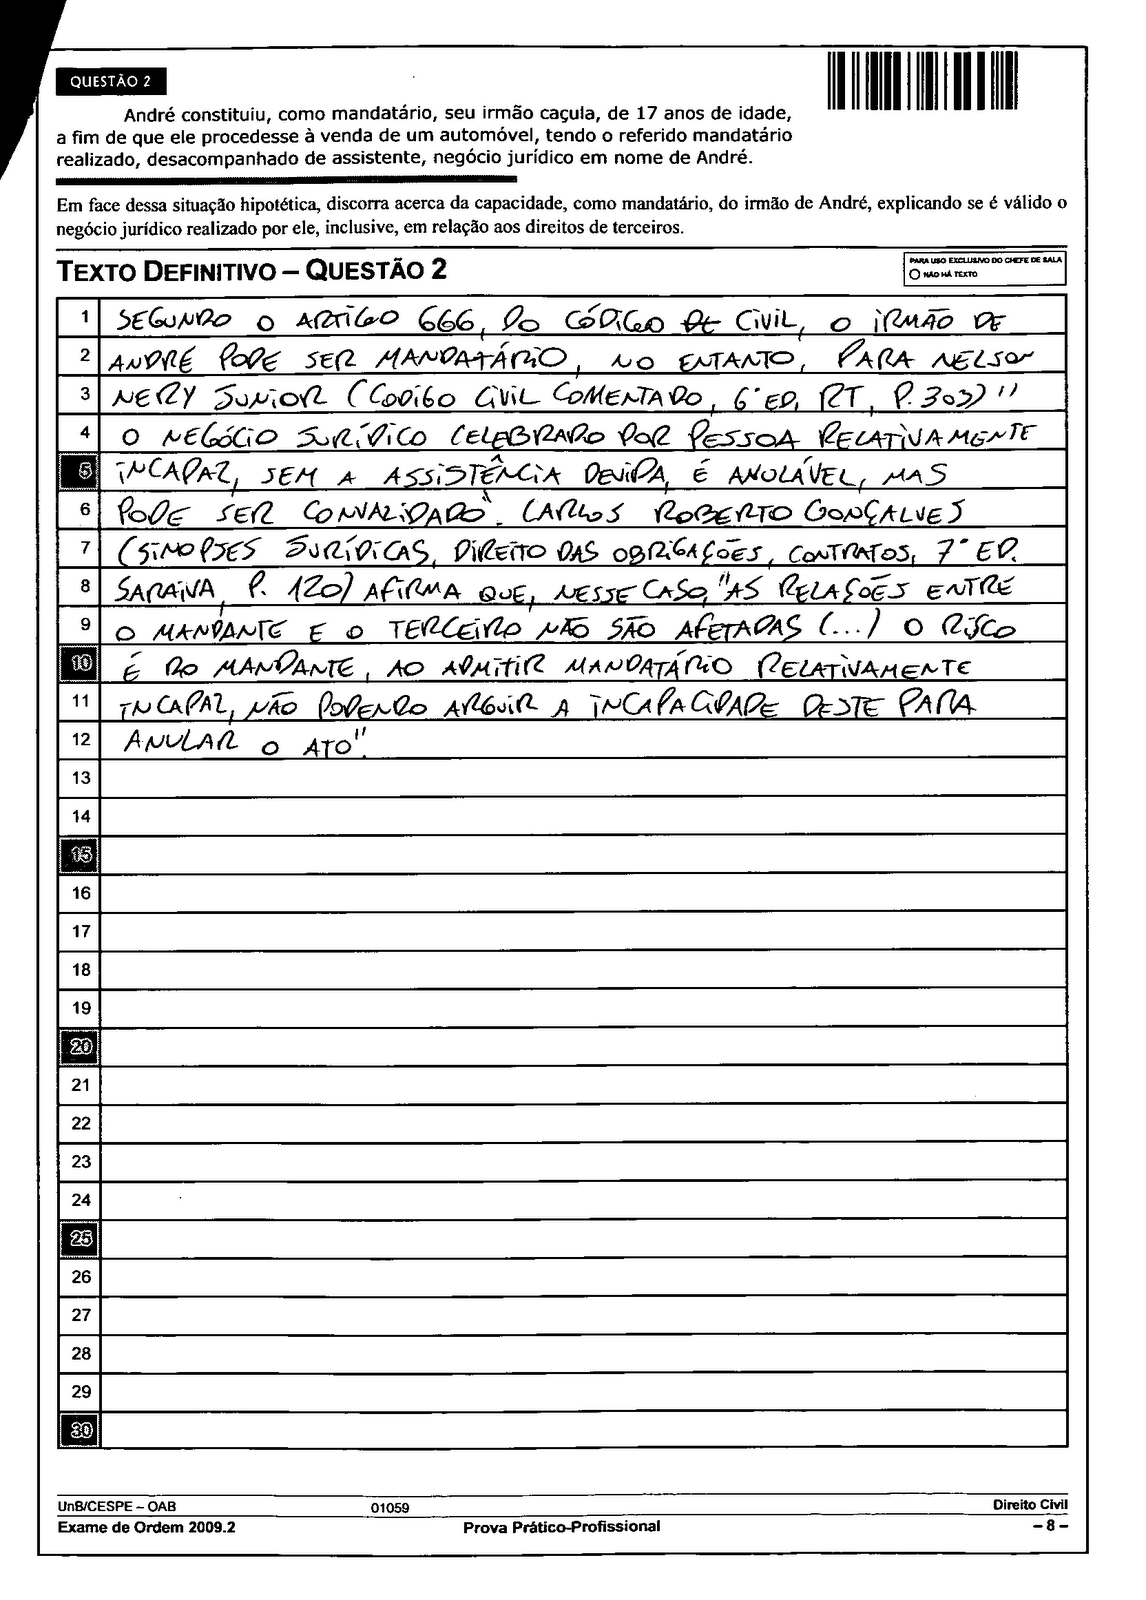 QUESTÃO 2
André constituiu, como mandatário, seu irmão caçula, de 17 anos de idade,
a fim de que ele procedesse à venda de um automóvel, tendo o referido mandatário
realizado, desacompanhado de assistente, negócio jurídico em nome de André.
Em face dessa situação hipotética, discorra acerca da capacidade, como mandatário, do irmão de André, explicando se é válido o
negócio jurídico realizado por ele, inclusive, em relação aos direitos de terceiros.
TEXTO DEFINITIVO – QUESTÃO 2
PARA USO EXCLUSIVO DO CHEFE DE SALA
NÃO HÁ TEXTO
1 SEGUNDO O ARTIGO 666, DO CÓDIGO DE CIVIL, O IRMÃO DE
2 ANDRÉ PODE SER MANDATÁRIO, NO ENTANTO, PARA NELSON
3 NERY JUNIOR (CODIGO CIVIL COMENTADO, 6ª ED, RT, P. 303) "
4 O NEGÓCIO JURÍDICO CELEBRADO POR PESSOA RELATIVAMENTE
5 INCAPAZ, SEM A ASSISTÊNCIA DEVIDA, É ANULÁVEL, MAS
6 PODE SER CONVALIDADO". CARLOS ROBERTO GONÇALVES
7 (SINOPSES JURÍDICAS, DIREITO DAS OBRIGAÇÕES, CONTRATOS, 7ª ED.
8 SARAIVA, P. 120) AFIRMA QUE, NESSE CASO, "AS RELAÇÕES ENTRE
9 O MANDANTE E O TERCEIRO NÃO SÃO AFETADAS (...) O RISCO
10 É DO MANDANTE, AO ADMITIR MANDATÁRIO RELATIVAMENTE
11 INCAPAZ, NÃO PODENDO ARGUIR A INCAPACIDADE DESTE PARA
12 ANULAR O ATO".
13
14
15
16
17
18
19
20
21
22
23
24
25
26
27
28
29
30
UnB/CESPE – OAB 01059 Direito Civil
Exame de Ordem 2009.2 Prova Prático-Profissional – 8 –